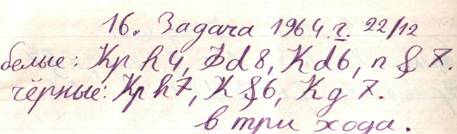 16. Задача 1964 г. 22/12
белые: Кр h4, Фd8, Кd6, п f7.
чёрные: Кр h7, К f6, К g7.
в три хода.